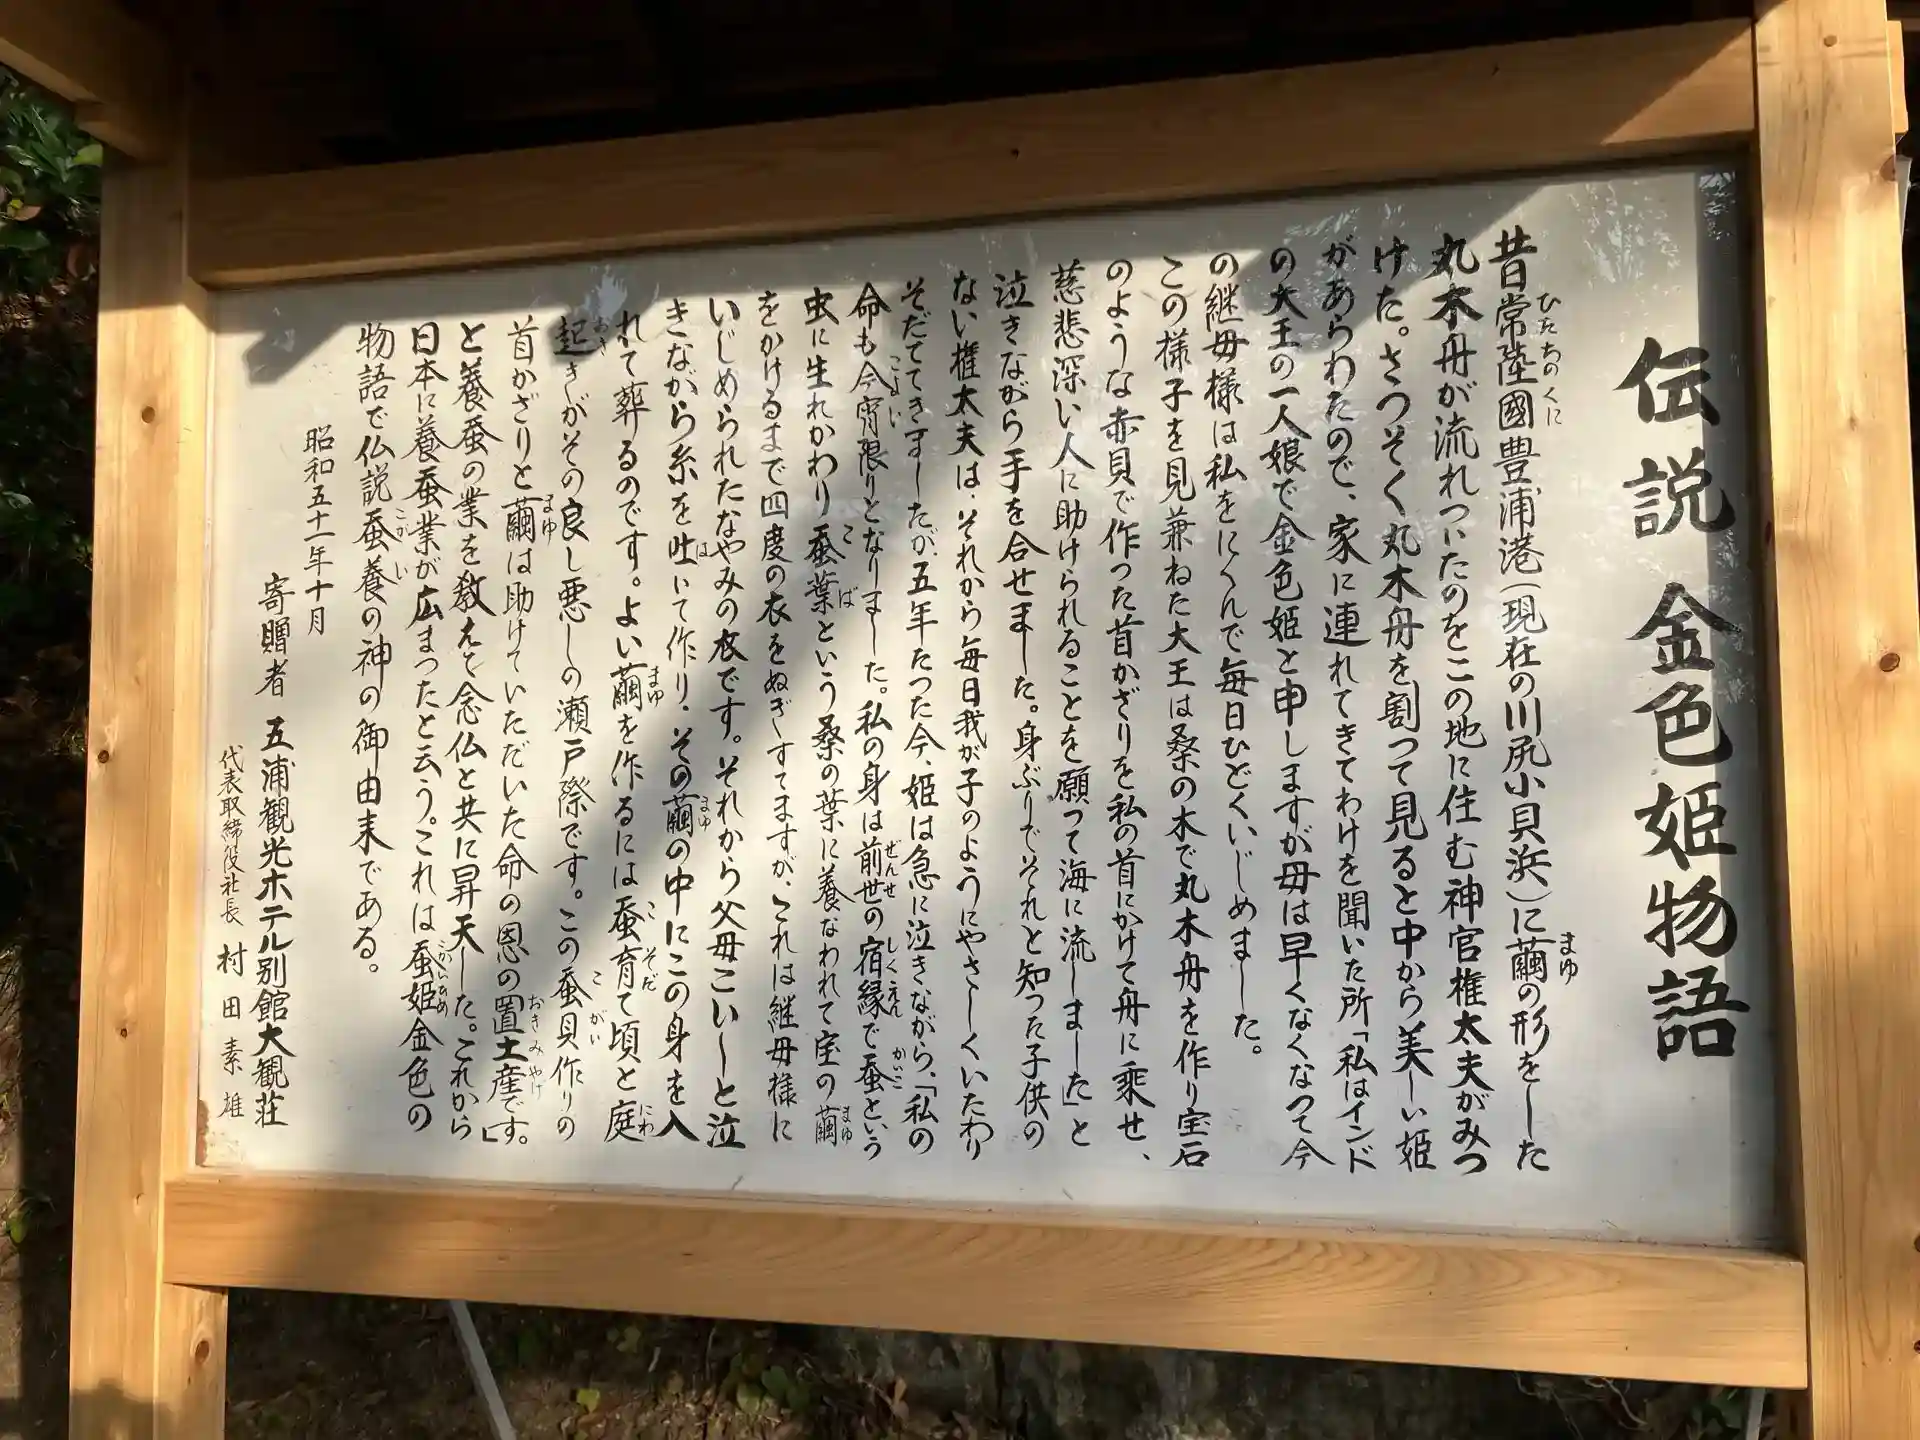 伝説 金色姫物語
昔常陸國豊浦港(現在の川尻小貝浜)に繭の形をした
丸木舟が流れついたのをこの地に住む神官権太夫がみつ
けた。さっそく丸木舟を割って見ると中から美しい姫
があらわたので、家に連れてきてわけを聞いた所「私はインド
の大王の一人娘で金色姫と申しますが母は早くなくなって今
の継母様は私をにくんで毎日ひどくいじめました。
この様子を見兼ねた大王は桑の木で丸木舟を作り宝石
のような赤貝で作った首かざりを私の首にかけて舟に乗せ、
慈悲深い人に助けられることを願って海に流しました」と
泣きながら手を合せました。身ぶりでそれと知った子供の
ない権太夫は、それから毎日我が子のようにやさしくいたわり
そだててきましたが、五年たった今、姫は急に泣きながら、「私の
命も今宵限りとなりました。私の身は前世の宿縁で蚕という
虫に生れかわり蚕葉という桑の葉に養なわれて宝の繭
をかけるまで四度の衣をぬぎすてますが、これは継母様に
いじめられたなやみの衣です。それから父母こいしと泣
きながら糸を吐いて作り、その繭の中にこの身を入
れて葬るのです。よい繭を作るには蚕育て頃と庭
起きがその良し悪しの瀬戸際です。この蚕貝作りの
首かざりと繭は助けていただいた命の恩の置土産です。」
と養蚕の業を教えて念仏と共に昇天した。これから
日本に養蚕業が広まったと云う。これは蚕姫金色の
物語で仏説蚕養の神の御由来である。
昭和五十一年十月
寄贈者 五浦観光ホテル別館大観荘
代表取締役社長 村田素雄